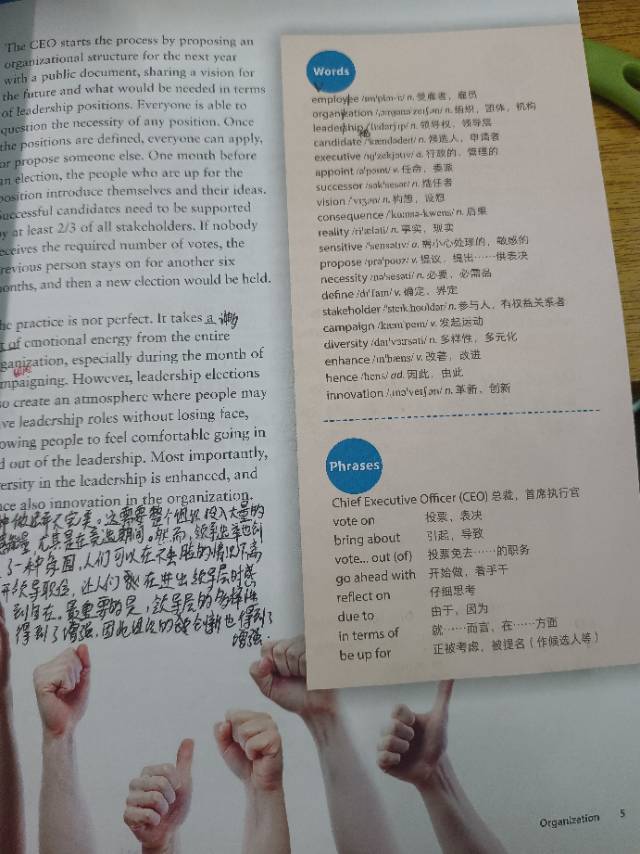 The CEO starts the process by proposing an
organizational structure for the next year
with a public document, sharing a vision for
the future and what would be needed in terms
of leadership positions. Everyone is able to
question the necessity of any position. Once
the positions are defined, everyone can apply,
or propose someone else. One month before
an election, the people who are up for the
position introduce themselves and their ideas.
uccessful candidates need to be supported
y at least 2/3 of all stakeholders. If nobody
eceives the required number of votes, the
revious person stays on for another six
onths, and then a new election would be held.
he practice is not perfect. It takes a
t of emotional energy from the entire
ganization, especially during the month of
mpaigning. However, leadership elections
so create an atmosphere where people may
ve leadership roles without losing face,
owing people to feel comfortable going in
d out of the leadership. Most importantly,
ersity in the leadership is enhanced, and
nce also innovation in the organization.
种做法不太完美。这需要整个组织投入大量的
尤其是在竞选期间。然而，领导选举也创
了一种氛围，人们可以在不丢脸的情况下离
开领导职位，让人们在进出领导层时感
到自在。最重要的是，领导层的多样性
得到了增强，因此组织的创新也得到了
增强.
Words
employee /ɪmˈplɔɪ-iː/ n. 受雇者，雇员
organization /ˌɔːrɡənəˈzeɪʃən/ n. 组织，团体，机构
leadership /ˈliːdərʃɪp/ n. 领导权，领导层
candidate /ˈkændədeɪt/ n. 候选人，申请者
executive /ɪɡˈzekjətɪv/ a. 行政的，管理的
appoint /əˈpɔɪnt/ v. 任命，委派
successor /səkˈsesər/ n. 继任者
vision /ˈvɪʒən/ n. 构想，设想
consequence /ˈkɑːnsə-kwens/ n. 后果
reality /riˈæləti/ n. 事实，现实
sensitive /ˈsensətɪv/ a. 需小心处理的，敏感的
propose /prəˈpoʊz/ v. 提议，提出……供表决
necessity /nəˈsesəti/ n. 必要，必需品
define /dɪˈfaɪn/ v. 确定，界定
stakeholder /ˈsteɪkˌhoʊldər/ n. 参与人，有权益关系者
campaign /kæmˈpeɪn/ v. 发起运动
diversity /daɪˈvɜːrsəti/ n. 多样性，多元化
enhance /ɪnˈhæns/ v. 改善，改进
hence /hens/ ad. 因此，由此
innovation /ˌɪnəˈveɪʃən/ n. 革新，创新
Phrases
Chief Executive Officer (CEO) 总裁，首席执行官
vote on 投票，表决
bring about 引起，导致
vote... out (of) 投票免去……的职务
go ahead with 开始做，着手干
reflect on 仔细思考
due to 由于，因为
in terms of 就……而言，在……方面
be up for 正被考虑，被提名（作候选人等）
Organization 5